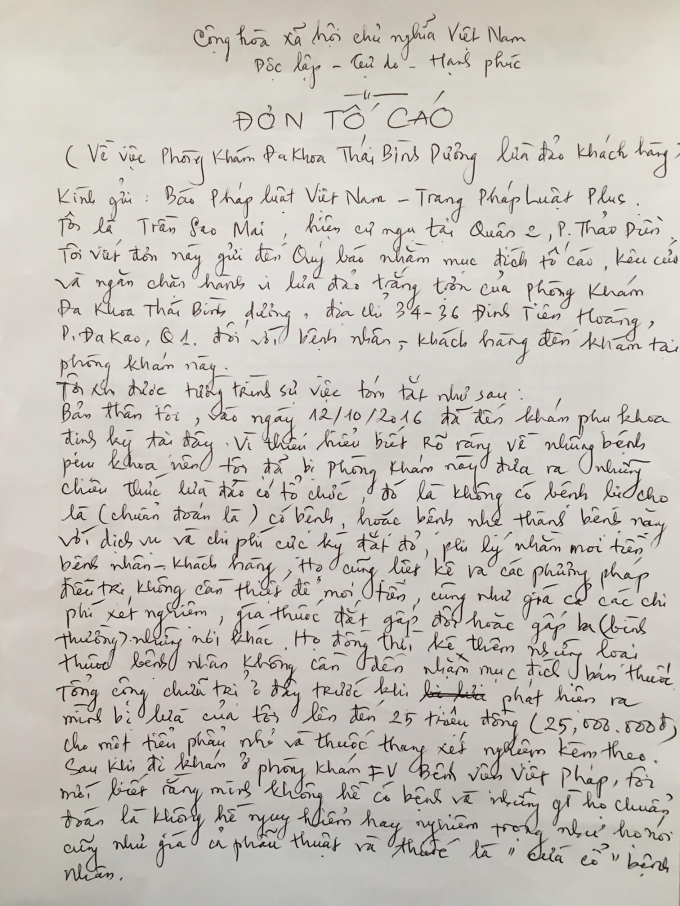 Cộng hòa xã hội chủ nghĩa Việt Nam
Độc lập - Tự do - Hạnh phúc
ĐƠN TỐ CÁO
( Về việc Phòng Khám Đa Khoa Thái Bình Dương lừa đảo khách hàng )
Kính gửi : Báo Pháp luật Việt Nam - Trang Pháp Luật Plus.
Tôi là Trần Sao Mai, hiện cư ngụ tại Quận 2, P. Thảo Điền.
Tôi viết đơn này gửi đến Quý báo nhằm mục đích tố cáo, kêu cứu
và ngăn chặn hành vi lừa đảo trắng trợn của phòng khám
Đa Khoa Thái Bình Dương, địa chỉ 34-36 Đinh Tiên Hoàng,
P. Đa Kao, Q1. đối với bệnh nhân, - khách hàng đến khám tại
phòng khám này.
Tôi xin được tường trình sự việc tóm tắt như sau :
Bản thân tôi, vào ngày 12/10/2016 đã đến khám phụ khoa
định kỳ tại đây. Vì thiếu hiểu biết rõ ràng về những bệnh
phụ khoa nên tôi đã bị phòng khám này đưa ra những
chiêu thức lừa đảo có tổ chức, đó là không có bệnh lại cho
là (chuẩn đoán là) có bệnh, hoặc bệnh nhẹ thành bệnh nặng
với dịch vụ và chi phí cực kỳ đắt đỏ, phi lý nhằm moi tiền
bệnh nhân - khách hàng, Họ cũng liệt kê ra các phương pháp
điều trị không cần thiết để moi tiền, cũng như giá cả các chi
phí xét nghiệm, giá thuốc đắt gấp đôi hoặc gấp ba (bình
thường) những nơi khác. Họ đồng thời kê thêm những loại
thuốc bệnh nhân không cần đến nhằm mục đích bán thuốc.
Tổng cộng chữa trị ở đây trước khi phát hiện ra
mình bị lừa của tôi lên đến 25 triệu đồng (25,000.000đ)
cho một tiểu phẫu nhỏ và thuốc thang xét nghiệm kèm theo.
Sau khi đi khám ở phòng khám FV Bệnh viện Việt Pháp, tôi
mới biết rằng mình không hề có bệnh và những gì họ chuẩn
đoán là không hề nguy hiểm hay nghiêm trọng như họ nói
cũng như giá cả phẫu thuật và thuốc là " cứa cổ " bệnh
nhân.